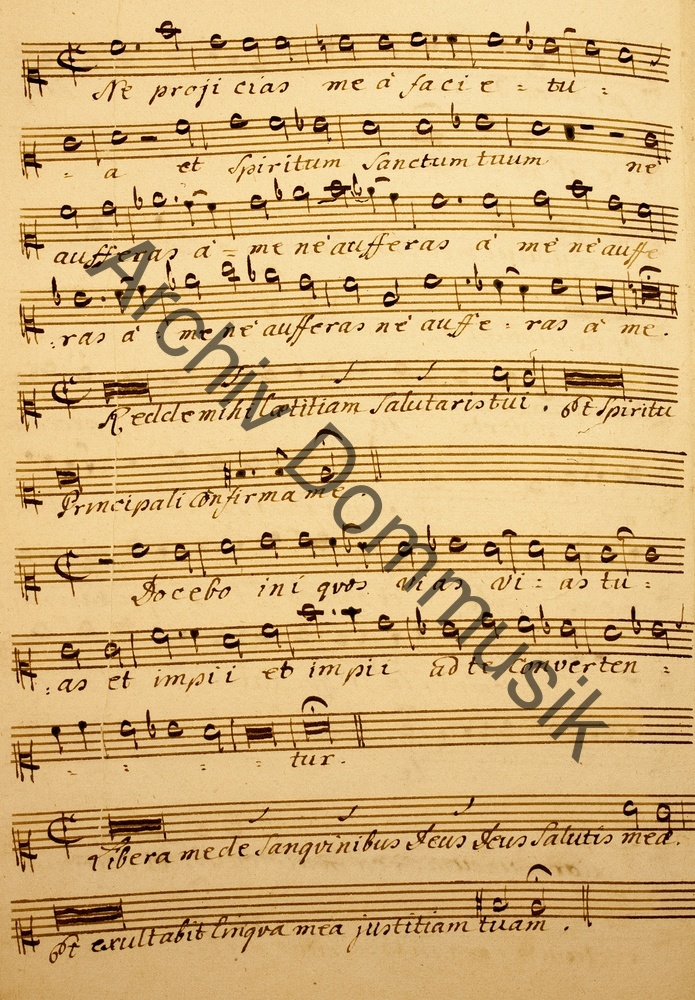 Ne proji cias me à faci e - tu -
- a et Spiritum Sanctum tuum ne
aufferas à - me ne aufferas à me ne auffe
- ras à - me ne aufferas ne auffe - ras à me.
Redde mihi lætitiam Salutaris tui. Et Spiritu
Principali Confirma me.
Docebo ini quos vias vi - as tu -
- as et impii et impii ad te Converten -
- - - - tur.
Libera me de Sanqvinibus Deus Deus Salutis meæ.
Et exultabit lingva mea justitiam tuam.
Archiv Dommusik